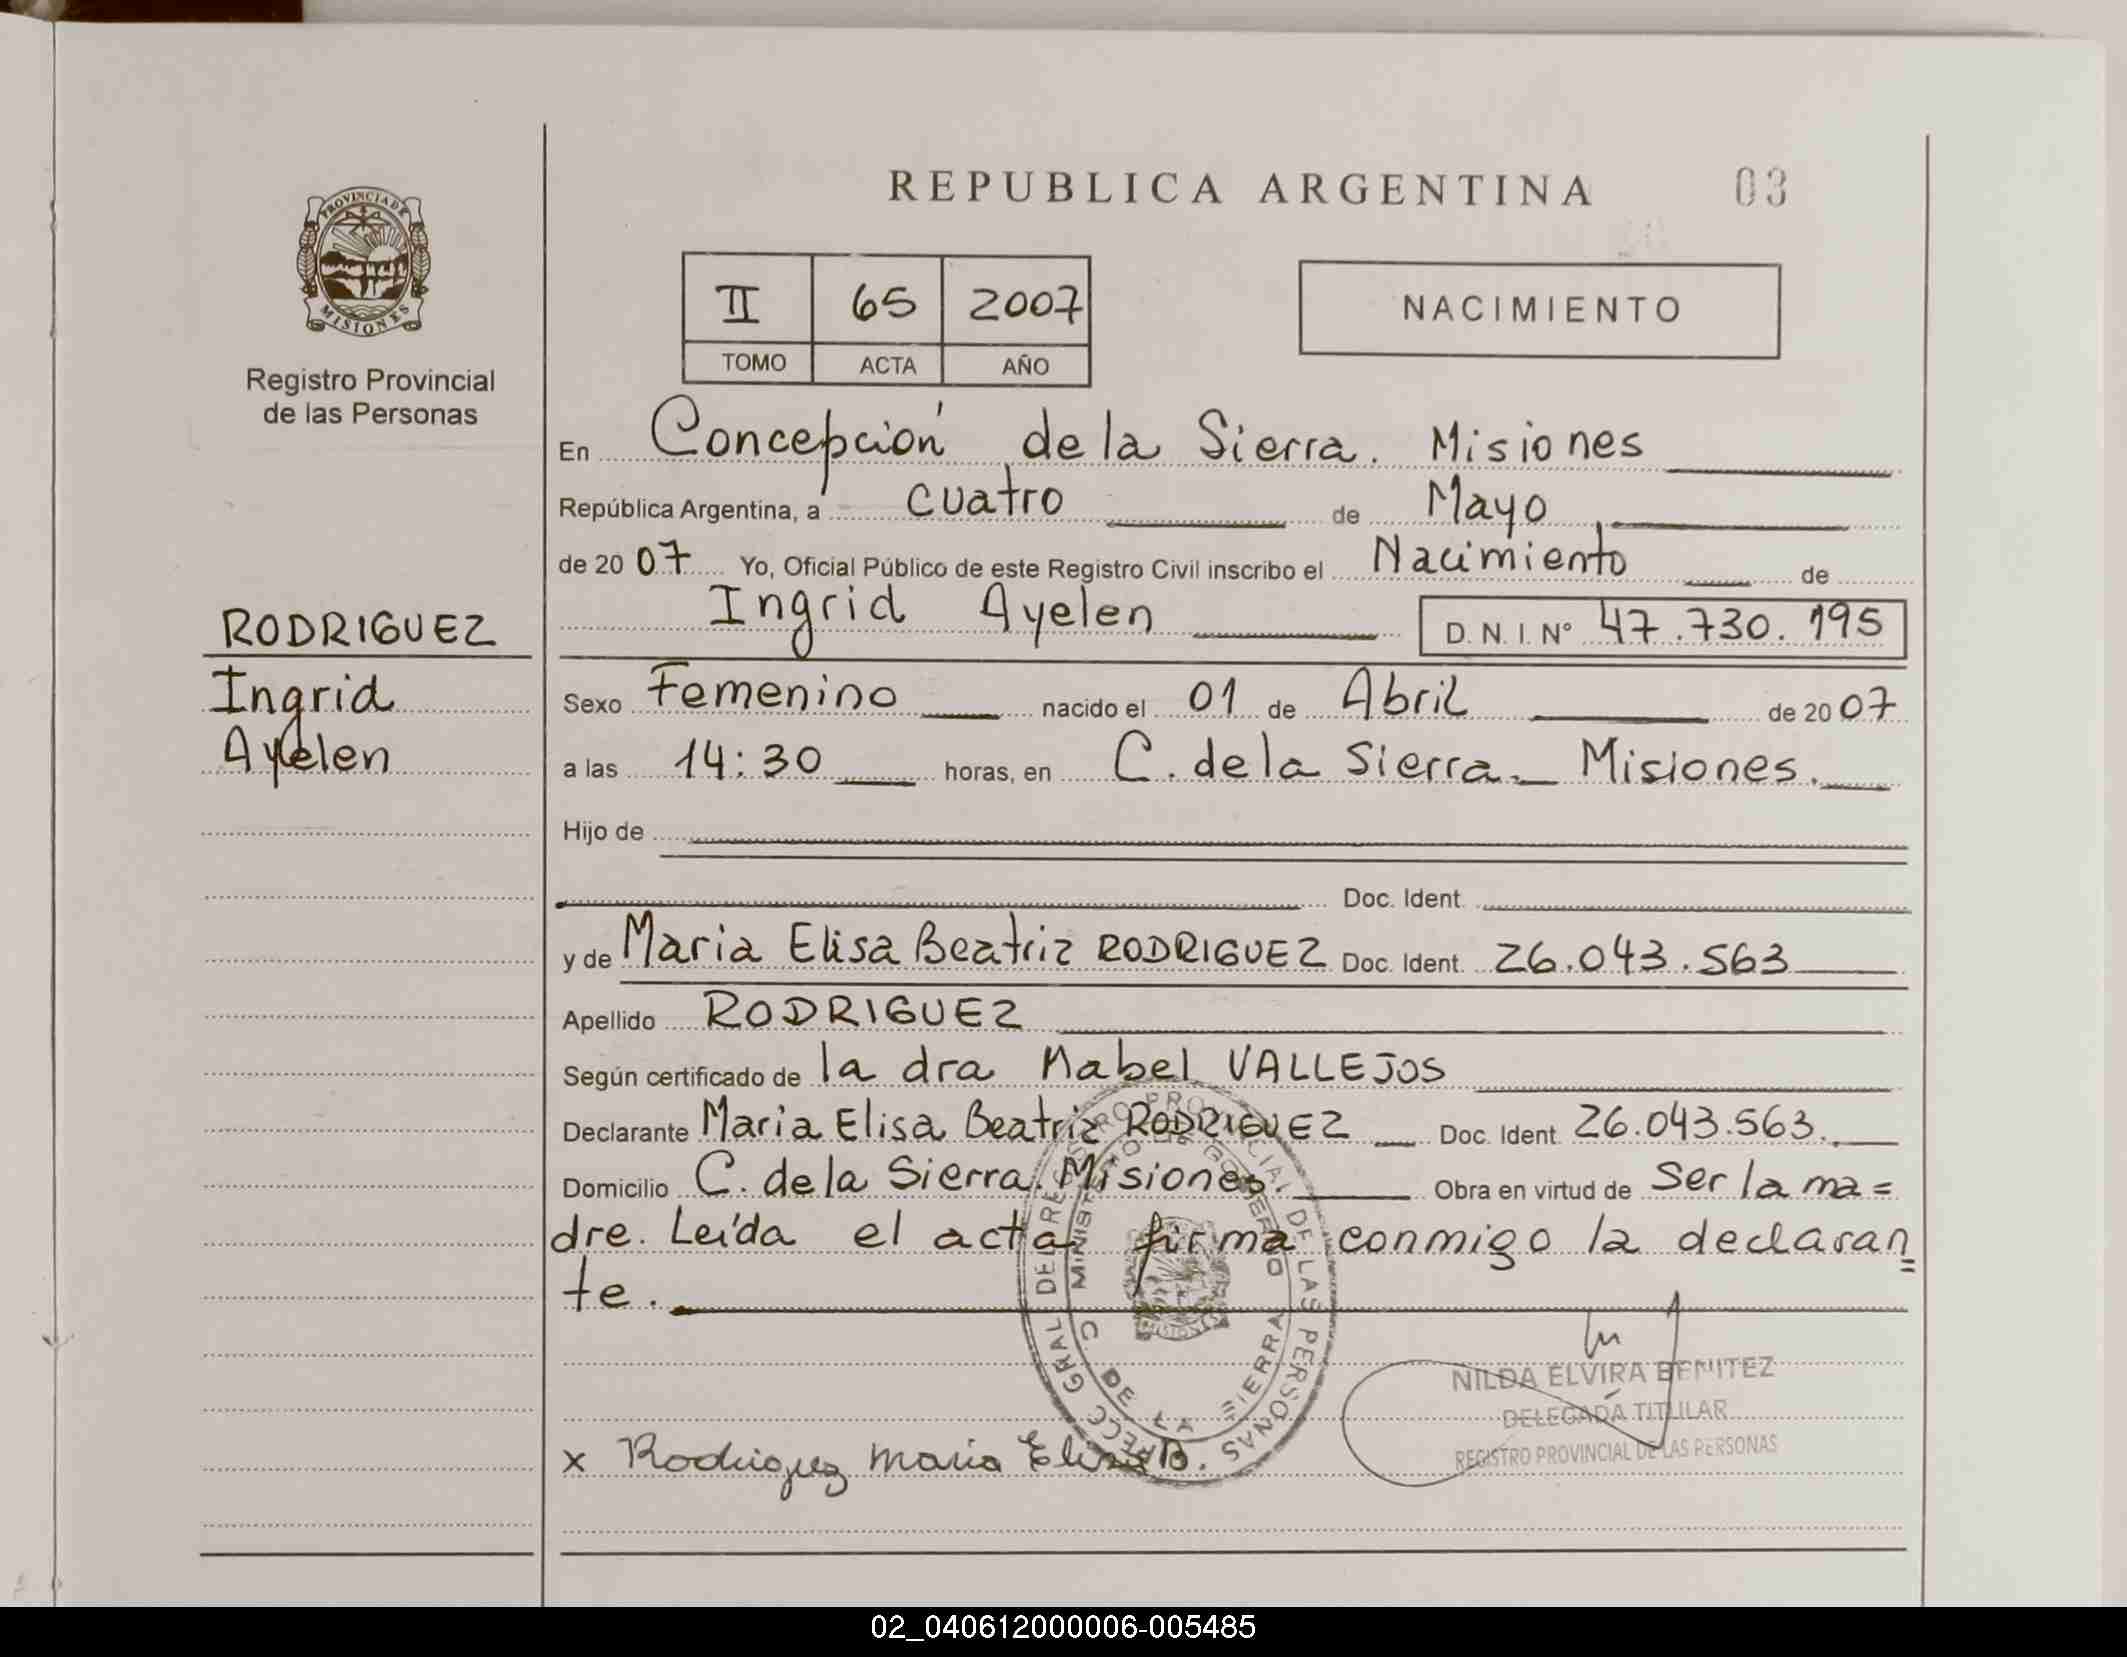 REPUBLICA ARGENTINA
03
PROVINCIA DE
MISIONES
Registro Provincial
de las Personas
II 65 2007
TOMO ACTA AÑO
NACIMIENTO
En Concepción de la Sierra. Misiones
República Argentina, a cuatro de Mayo
de 2007 Yo, Oficial Público de este Registro Civil inscribo el Nacimiento de
Ingrid Ayelen D. N. I. Nº 47.730.195
RODRIGUEZ
Ingrid
Ayelen
Sexo Femenino nacido el 01 de Abril de 2007
a las 14:30 horas, en C. de la Sierra. Misiones.
Hijo de
Doc. Ident.
y de Maria Elisa Beatriz RODRIGUEZ Doc. Ident. 26.043.563
Apellido RODRIGUEZ
Según certificado de la dra Mabel VALLEJOS
Declarante Maria Elisa Beatriz RODRIGUEZ Doc. Ident. 26.043.563.
Domicilio C. de la Sierra. Misiones. Obra en virtud de Ser la ma=
dre. Leída el acta firma conmigo la declaran=
te.
GRAL DE REGISTRO PROVINCIAL DE LAS PERSONAS
MINISTERIO DE GOBIERNO
C. DE LA SIERRA
MISIONES
NILDA ELVIRA BENITEZ
DELEGADA TITULAR
REGISTRO PROVINCIAL DE LAS PERSONAS
x Rodriguez Maria Elisa B.
02_040612000006-005485